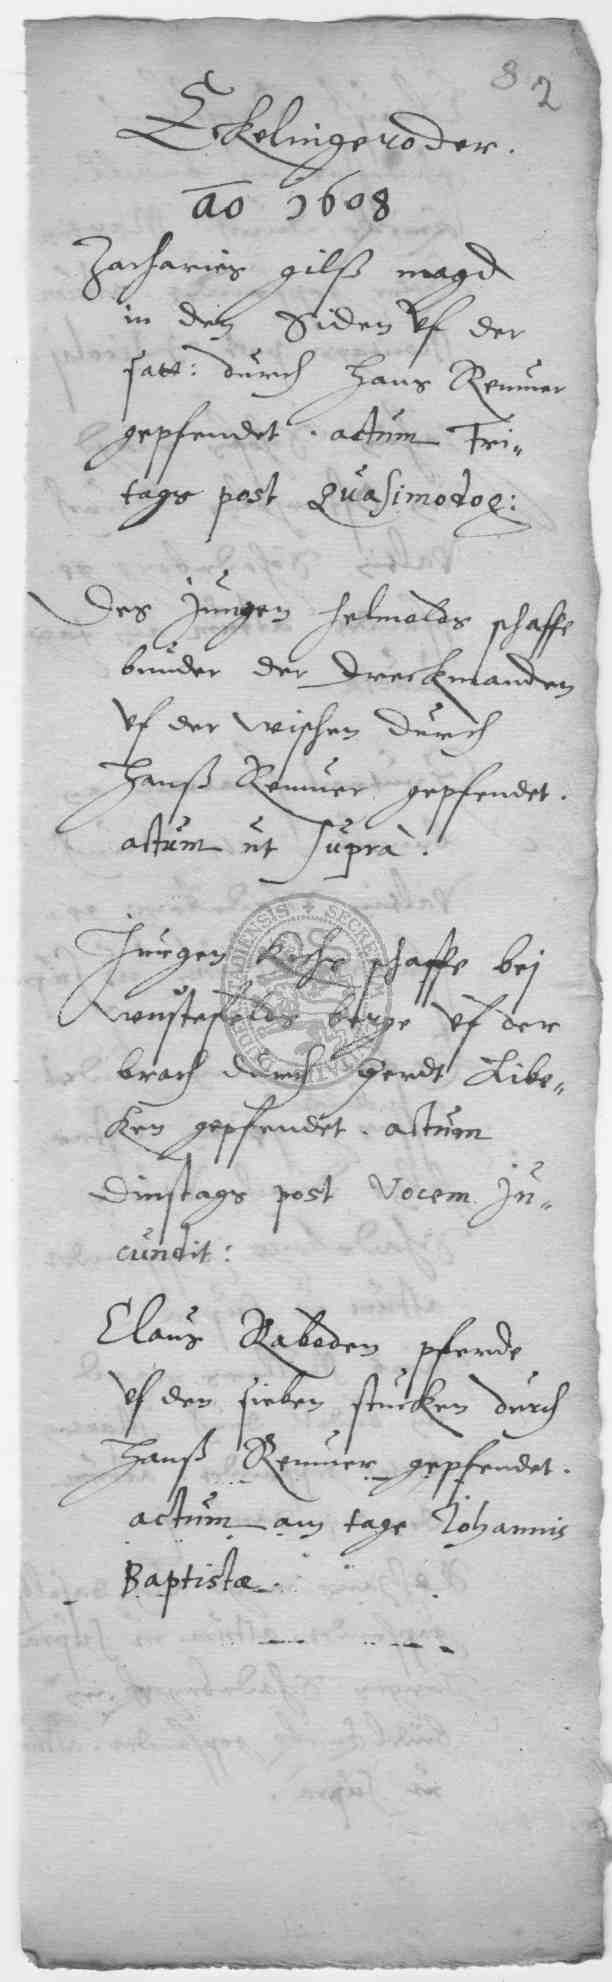 82
Eckelingeroder.
ao 1608
Zacharies gilß magd
in den Siden vf der
satt: durch Hans Remmer
gepfendet. actum Fri-
tags post Quasimodog:
Des Jungen Helmolds schaffe
bunder der Dreckmanden
vf der wischen durch
Hanß Remmer gepfendet.
actum ut suprà.
Jurgen Kochs schaffe bej
wustefelds berge vf der
brach durch Gerdt Libe-
ken gepfendet. actum
Dinstags post Vocem Ju-
cundit:
Claus Raboden pferde
vf den sieben stucken durch
Hanß Remmer gepfendet.
actum am tage Johannis
Baptistæ.